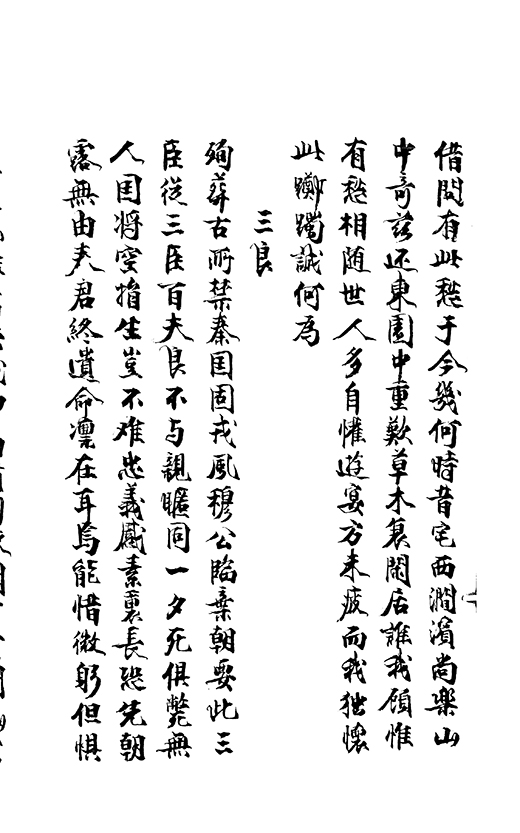 借問有此愁于今幾何時昔宅西澗濱尚樂山
中奇茲还東園中重歎草木衰閑居誰我顧惟
有愁相随世人多自懽遊宴方未疲而我独懷
此躑躅誠何為
三良
殉葬古所禁秦囯固戎風穆公臨棄朝要此三
臣從三臣百夫良不与親暱同一夕死俱斃無
人囯将空捐生豈不难忠義感素衷長恐先朝
露無由夫君終遺命凛在耳焉能惜微躬但惧